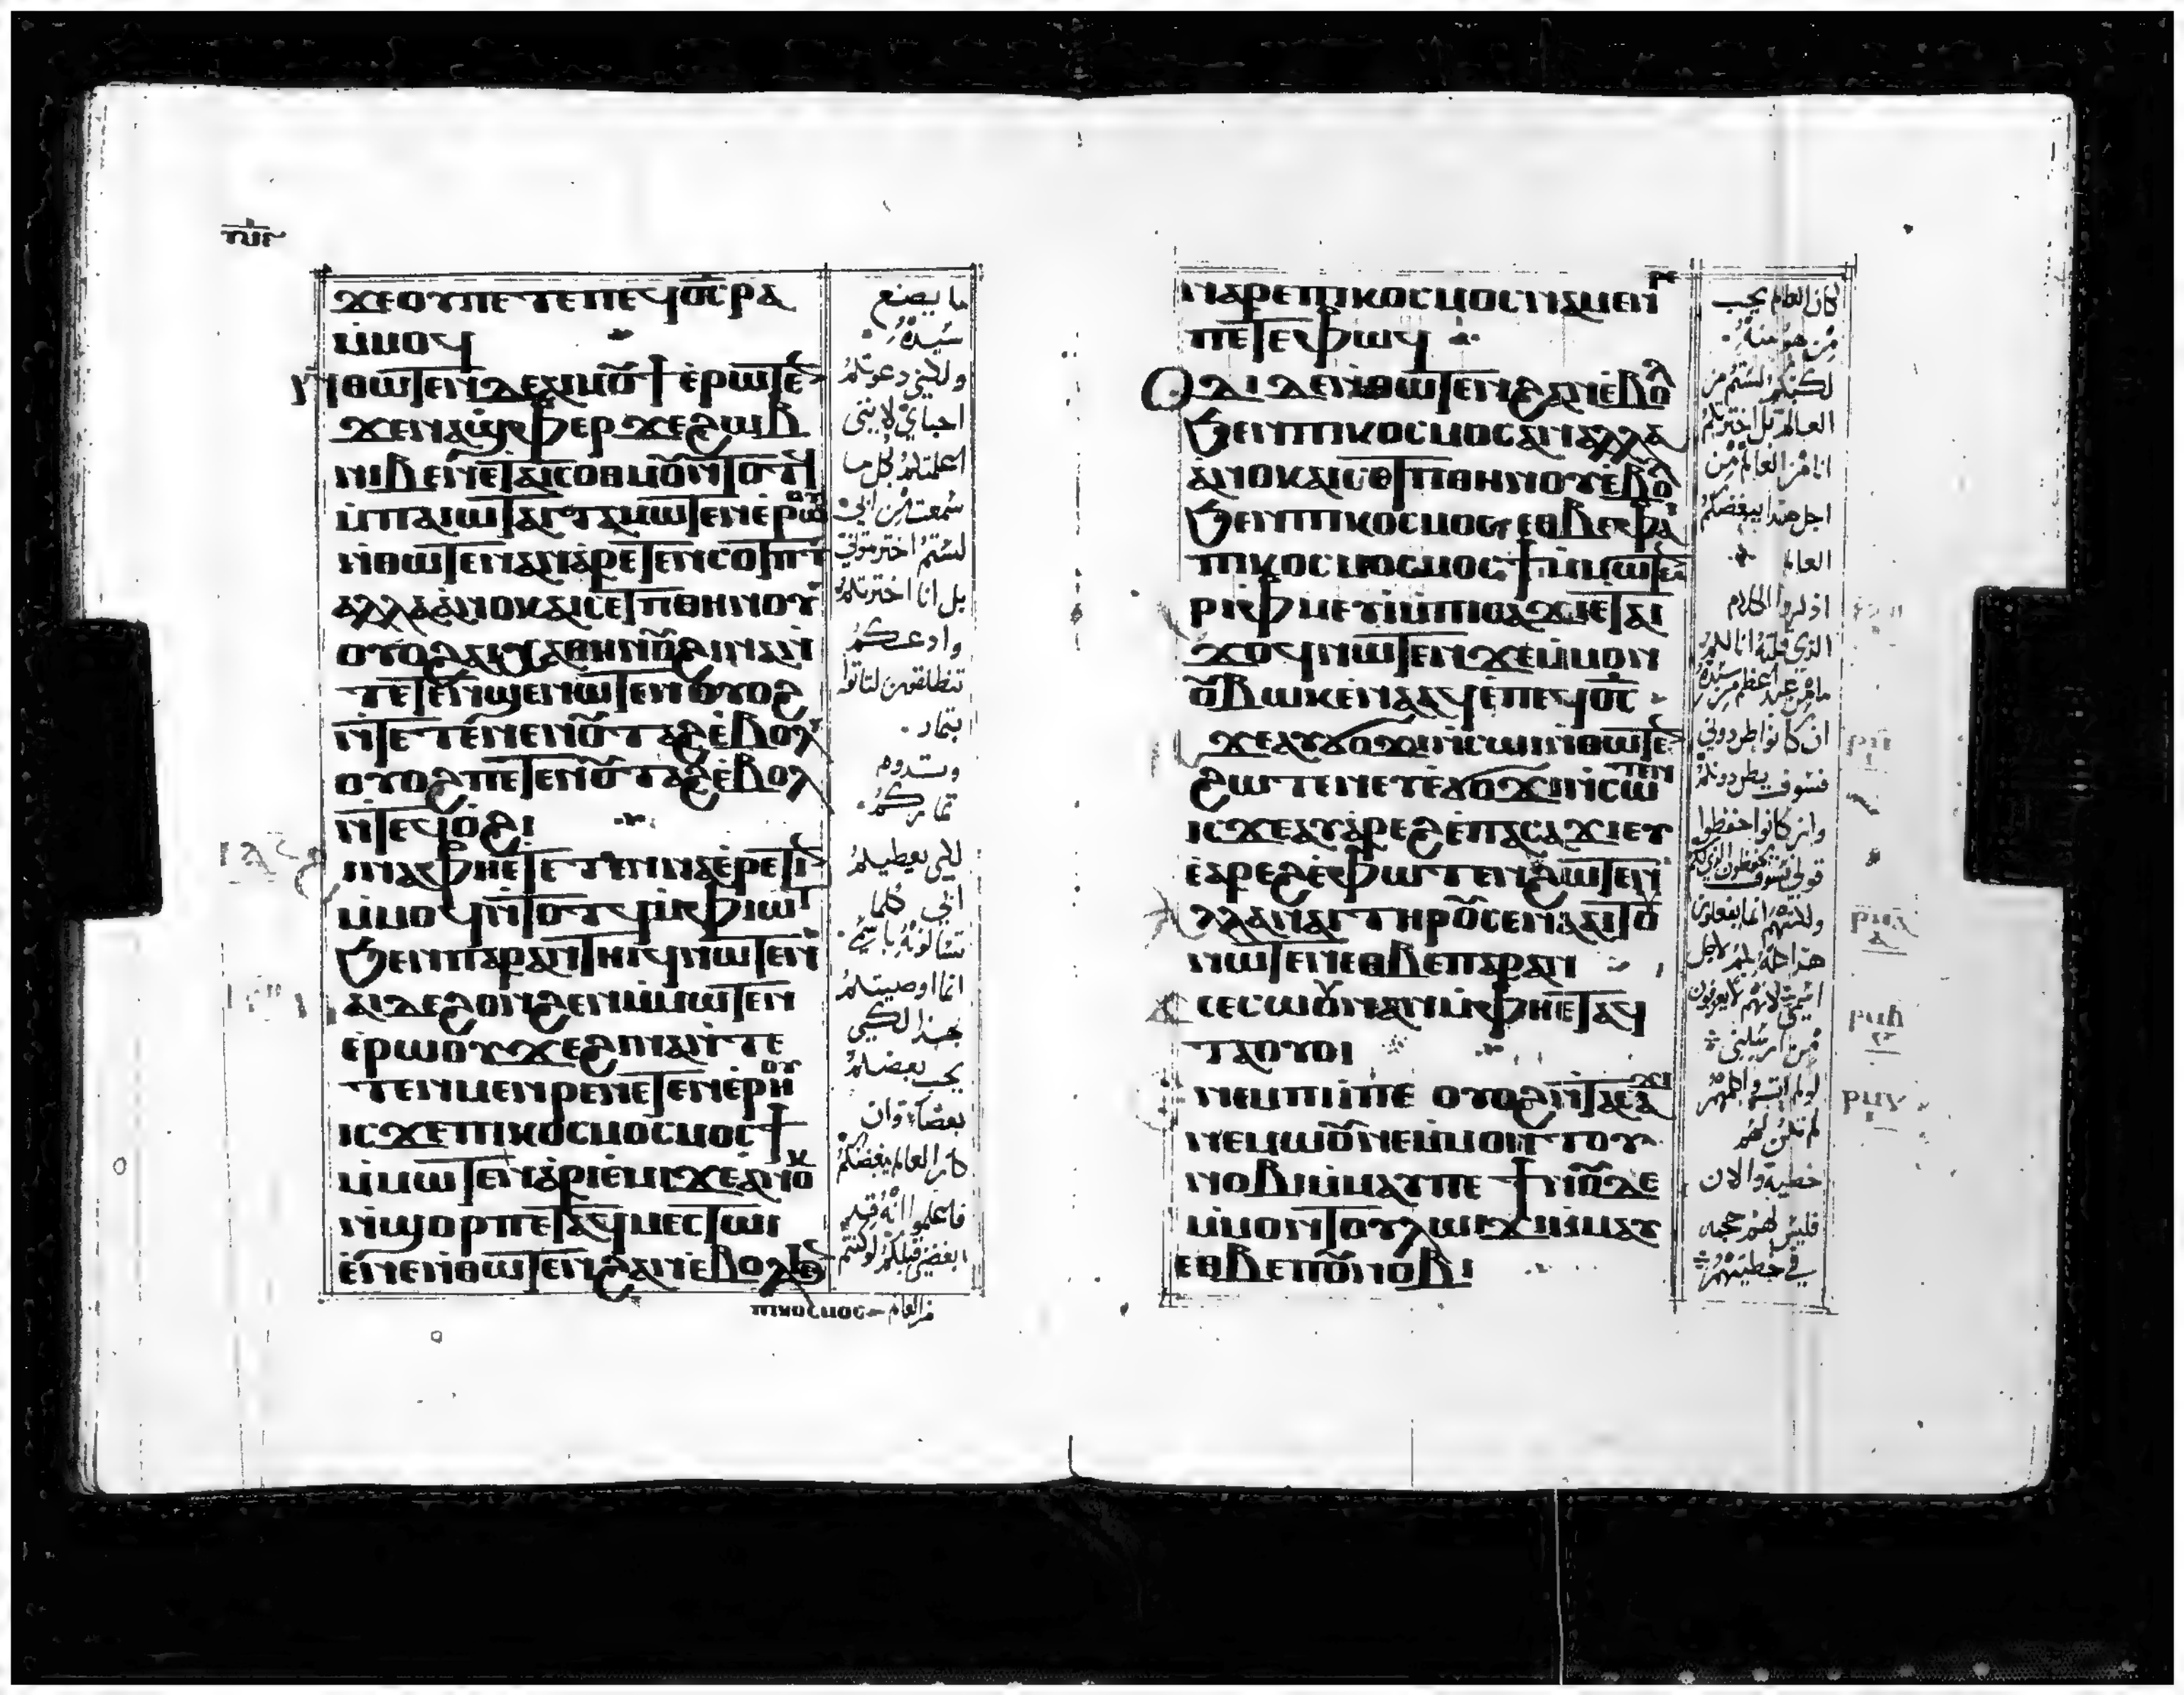 ϫⲉⲟⲩⲡⲉⲧⲉⲡⲉϥⲟ̅ⲥ̅ⲣⲁ
ⲙ̀ⲙⲟϥ
ⲛ̀ⲑⲱⲧⲉⲛⲇⲉⲁⲓⲙⲟⲩϯⲉ̀ⲣⲱⲧⲉ̅
ϫⲉⲛⲁϣⲫⲏⲣϫⲉϩⲱⲃ
ⲛⲓⲃⲉⲛⲉⲧⲁⲓⲥⲟⲑⲙⲟⲩⲛ̀ⲧⲟⲧϥ
ⲙ̀ⲡⲁⲓⲱⲧⲁⲓⲧⲁⲙⲱⲧⲉⲛⲉ̀ⲣⲱⲟⲩ
ⲛ̀ⲑⲱⲧⲉⲛⲁⲛⲁ̀ⲣⲉⲧⲉⲛⲥⲟⲧⲡⲧ
ⲁⲗⲗⲁⲁ̀ⲛⲟⲕⲁⲓⲥⲉⲧⲡⲑⲏⲛⲟⲩ
ⲟⲩⲟϩⲁⲓⲭⲁⲑⲏⲛⲟⲩϩⲓⲛⲁⲛ̀
ⲧⲉⲧⲉⲛϣⲉⲛⲱⲧⲉⲛⲟⲩⲟϩ
ⲛ̀ⲧⲉⲧⲉⲛⲉⲛⲟⲩⲧⲁϩⲉ̀ⲃⲟⲗ
ⲟⲩⲟϩⲡⲉⲧⲉⲛⲟⲩⲧⲁϩⲉ̀ⲃⲟⲗ
ⲛ̀ⲧⲉϥⲟ̀ϩⲓ
ϩⲓⲛⲁⲫⲏⲉⲧⲉⲧⲉⲛⲛⲁⲉ̀ⲣⲉⲧⲓⲛ
ⲙ̀ⲙⲟϥⲛ̀ⲧⲟⲧϥⲙ̀ⲫⲓⲱⲧ
ϧⲉⲛⲡⲁⲣⲁⲛⲧⲏⲓϥⲛⲱⲧⲉⲛ
ⲁⲓϩⲟⲛϩⲉⲛⲙ̀ⲙⲱⲧⲉⲛ
ⲉ̀ⲣⲱⲟⲩϫⲉϩⲓⲛⲁⲛ̀ⲧⲉ
ⲧⲉⲛⲙⲉⲛⲣⲉⲛⲉⲧⲉⲛⲉ̀ⲣⲏⲟⲩ
ⲓⲥϫⲉⲡⲓⲕⲟⲥⲙⲟⲥⲙⲟⲥϯ
ⲙ̀ⲙⲱⲧⲉⲛⲁ̀ⲣⲓⲉ̀ⲙⲓϫⲉⲁⲛⲟⲕ
ⲛ̀ϣⲟⲣⲡⲉⲧⲁϥⲙⲉⲥⲧⲱⲓ
ⲉ̀ⲛⲉⲛ̀ⲑⲱⲧⲉⲛϩⲁⲛⲉ̀ⲃⲟⲗϧⲉⲛ
ⲡⲓⲕⲟⲥⲙⲟⲥ من العالم
ما يصنع
سيده
ولكني دعوتكم
احباي لانني
اعلمتكم كل ما
سمعته من ابي
لستم اخترتموني
بل انا اخترتكم
وادعكم
تنطلقون لتاتوا
بثمار
وتدوم
ثماركم
لكي يعطيكم
ابي كلما
تسالونه باسمي
انما اوصيتكم
بهذا لكي
يحب بعضكم
بعضا وان
كان العالم يبغضكم
فاعلموا انه قبلكم
ابغضني لو كنتم
ⲛⲁⲣⲉⲡⲓⲕⲟⲥⲙⲟⲥⲛⲁⲙⲉⲛⲣⲉ
ⲡⲉⲧⲉⲫⲱϥ
ⲟⲧⲓⲇⲉⲛ̀ⲑⲱⲧⲉⲛϩⲁⲛⲉ̀ⲃⲟⲗ
ϧⲉⲛⲡⲓⲕⲟⲥⲙⲟⲥⲁⲛⲁⲗⲗⲁ
ⲁ̀ⲛⲟⲕⲁⲓⲥⲉⲧⲡⲑⲏⲛⲟⲩⲉ̀ⲃⲟⲗ
ϧⲉⲛⲡⲓⲕⲟⲥⲙⲟⲥⲉⲑⲃⲉⲫⲁⲓ
ⲡⲓⲕⲟⲥⲙⲟⲥⲙⲟⲥϯⲙ̀ⲙⲱⲧⲉⲛ
ⲣⲓⲫⲙⲉⲩⲓ̀ⲙ̀ⲡⲓⲥⲁϫⲓⲉⲧⲁⲓ
ϫⲟϥⲛⲱⲧⲉⲛϫⲉⲙ̀ⲙⲟⲛ
ⲟⲩⲃⲱⲕⲉⲛⲁⲁϥⲉ̀ⲡⲉϥⲟ̅ⲥ̅
ⲓⲥϫⲉⲁⲩϭⲟϫⲓⲛ̀ⲥⲱⲓⲛ̀ⲑⲱⲧⲉ̅
ϩⲱⲧⲉⲛⲉⲩⲉ̀ϭⲟϫⲓⲛ̀ⲥⲱⲧⲉⲛ
ⲓⲥϫⲉⲁⲩⲁ̀ⲣⲉϩⲉ̀ⲡⲁⲥⲁϫⲓⲉⲩ
ⲉ̀ⲁ̀ⲣⲉϩⲉ̀ⲫⲱⲧⲉⲛϩⲱⲧⲉⲛ
ⲁⲗⲗⲁⲛⲁⲓⲧⲏⲣⲟⲩⲥⲉⲛⲁⲁⲓⲧⲟⲩ
ⲛⲱⲧⲉⲛⲉⲑⲃⲉⲡⲁⲣⲁⲛ
ϫⲉⲥⲉⲥⲱⲟⲩⲛⲁⲛⲙ̀ⲫⲏⲉⲧⲁϥ
ⲧⲁⲟⲩⲟⲓ
ⲛⲉⲙⲡⲓⲓ̀ⲡⲉ ⲟⲩⲟϩⲛ̀ⲧⲁⲥⲁϫⲓ
ⲛⲉⲙⲱⲟⲩⲛⲉⲙ̀ⲙⲟⲛⲧⲟⲩ
ⲛⲟⲃⲓⲙ̀ⲙⲁⲩⲡⲉ ϯⲛⲟⲩⲇⲉ
ⲙ̀ⲙⲟⲛⲧⲟⲩⲗⲱⲓϫⲓⲙ̀ⲙⲁⲩ
ⲉⲑⲃⲉⲡⲟⲩⲛⲟⲃⲓ
كان العالم يحب
من هو منه
لكنكم لستم من
العالم بل اخترتكم
انا من العالم من
اجل هذا يبغضكم
العالم
اذكروا الكلام
الذي قلته انا لكم
ما من عبد اعظم من سيده
ان كانوا طردوني
فسوف يطردونكم
وان كانوا حفظوا
قولي فسوف يحفظون
ولكنهم انما يفعلون
هذا كله بكم لاجل
اسمي لانهم لا يعرفون
من ارسلني
لو لم ات واكلمهم
لم تكن لهم
خطية والان
فليس لهم حجة
في خطيتهم